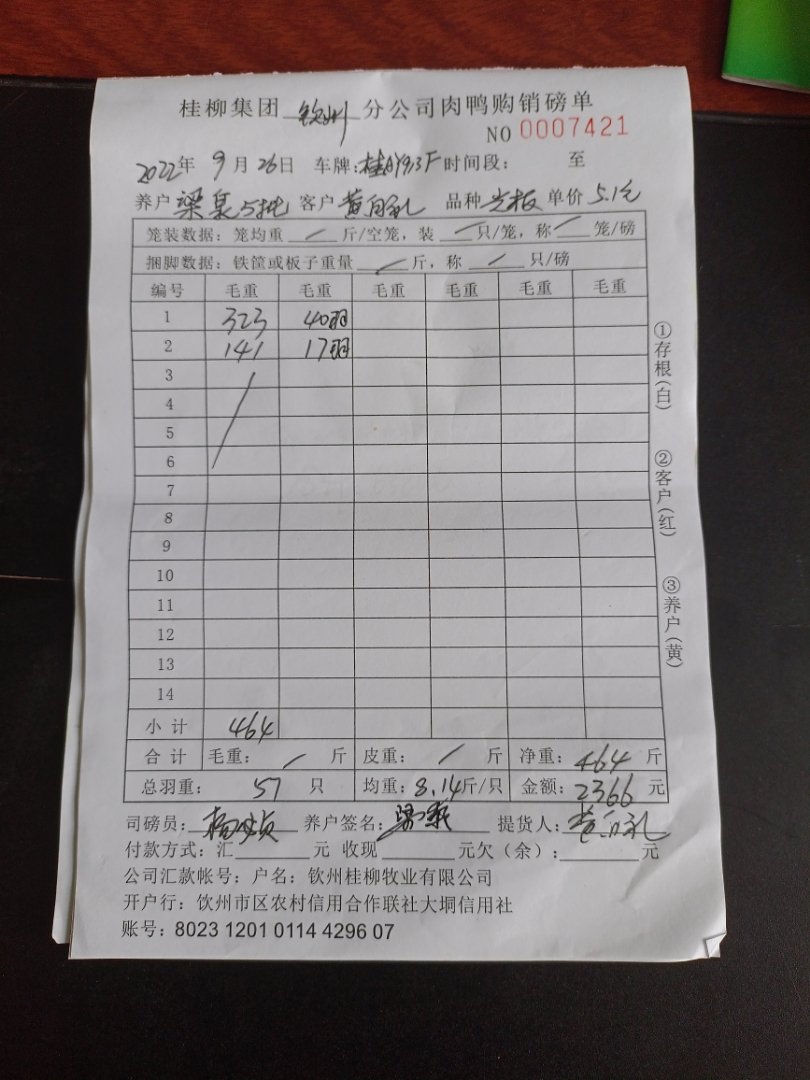 桂柳集团 钦州 分公司肉鸭购销磅单
NO 0007421
2022年 9月 26日 车牌: 时间段： 至
养户 梁泉5批 客户 黄 品种 光板 单价 5.1元
笼装数据：笼均重 / 斤/空笼，装 / 只/笼，称 / 笼/磅
捆脚数据：铁筐或板子重量 / 斤，称 / 只/磅
编号 毛重 毛重 毛重 毛重 毛重 毛重
1 323 40羽
2 141 17羽
3
4
5
6
7
8
9
10
11
12
13
14
小计 464
合计 毛重： / 斤 皮重： / 斤 净重：464 斤
总羽重： 57 只 均重：8.14斤/只 金额：2366 元
司磅员： 养户签名： 提货人：黄
付款方式：汇 元 收现 元欠（余）； 元
公司汇款帐号：户名：钦州桂柳牧业有限公司
开户行：钦州市区农村信用合作联社大垌信用社
账号：8023 1201 0114 4296 07
①存根(白)
②客户(红)
③养户(黄)